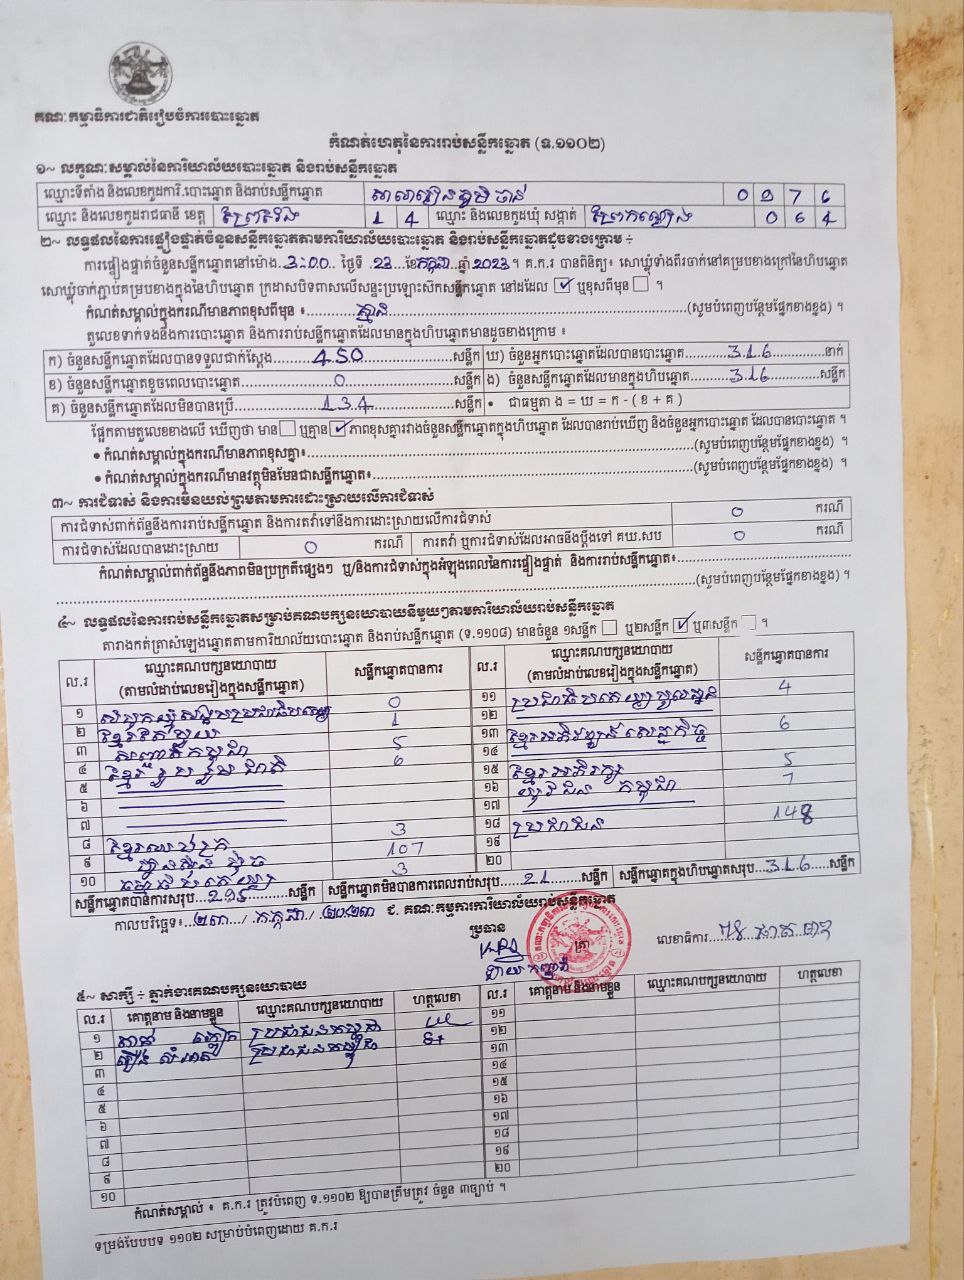 គណៈកម្មាធិការជាតិរៀបចំការបោះឆ្នោត
កំណត់ហេតុនៃការរាប់សន្លឹកឆ្នោត (ទ.១១០២)
១~ លក្ខណៈសម្គាល់នៃការិយាល័យបោះឆ្នោត និងរាប់សន្លឹកឆ្នោត
ឈ្មោះទីតាំង និងលេខកូដការិ.បោះឆ្នោត និងរាប់សន្លឹកឆ្នោត សាលារៀនភូមិ ចាន់ 0 9 7 6
ឈ្មោះ និងលេខកូដរាជធានី ខេត្ត ព្រៃវែង 1 4 ឈ្មោះ និងលេខកូដឃុំ សង្កាត់ 0 6 4
២~ លទ្ធផលនៃការផ្ទៀងផ្ទាត់ចំនួនសន្លឹកឆ្នោតតាមការិយាល័យបោះឆ្នោត និងរាប់សន្លឹកឆ្នោតដូចខាងក្រោម ÷
ការផ្ទៀងផ្ទាត់ចំនួនសន្លឹកឆ្នោតនៅម៉ោង..3:00.. ថ្ងៃទី .23..ខែកក្កដា..ឆ្នាំ 2023។ គ.ក.រ បានពិនិត្យ៖ សោឃ្លុំទាំងពីរចាក់នៅគម្របខាងក្រៅនៃហិបឆ្នោត
សោឃ្លុំចាក់ភ្ជាប់គម្របខាងក្នុងនៃហិបឆ្នោត ក្រដាសបិទពាសលើសន្ទះប្រឡោះស៊កសន្លឹកឆ្នោត នៅដដែល ☑ ឬខុសពីមុន ☐ ។
កំណត់សម្គាល់ក្នុងករណីមានភាពខុសពីមុន ៖..........គ្មាន..........(សូមបំពេញបន្ថែមផ្នែកខាងខ្នង) ។
តួលេខទាក់ទងនឹងការបោះឆ្នោត និងការរាប់សន្លឹកឆ្នោតដែលមានក្នុងហិបឆ្នោតមានដូចខាងក្រោម ៖
ក) ចំនួនសន្លឹកឆ្នោតដែលបានទទួលជាក់ស្តែង.......450.......សន្លឹក ឃ) ចំនួនអ្នកបោះឆ្នោតដែលបានបោះឆ្នោត.......316.......នាក់
ខ) ចំនួនសន្លឹកឆ្នោតខូចពេលបោះឆ្នោត.......0.......សន្លឹក ង) ចំនួនសន្លឹកឆ្នោតដែលមានក្នុងហិបឆ្នោត.......316.......សន្លឹក
គ) ចំនួនសន្លឹកឆ្នោតដែលមិនបានប្រើ.......134.......សន្លឹក • ជាធម្មតា ង = ឃ = ក - ( ខ + គ )
ផ្អែកតាមតួលេខខាងលើ ឃើញថា មាន ☐ ឬគ្មាន ☑ ភាពខុសគ្នារវាងចំនួនសន្លឹកឆ្នោតក្នុងហិបឆ្នោត ដែលបានរាប់ឃើញ និងចំនួនអ្នកបោះឆ្នោត ដែលបានបោះឆ្នោត ។
• កំណត់សម្គាល់ក្នុងករណីមានភាពខុសគ្នា៖..........(សូមបំពេញបន្ថែមផ្នែកខាងខ្នង) ។
• កំណត់សម្គាល់ក្នុងករណីមានវត្ថុមិនមែនជាសន្លឹកឆ្នោត៖..........(សូមបំពេញបន្ថែមផ្នែកខាងខ្នង) ។
៣~ ការជំទាស់ និងការមិនយល់ព្រមតាមការដោះស្រាយលើការជំទាស់
ការជំទាស់ពាក់ព័ន្ធនឹងការរាប់សន្លឹកឆ្នោត និងការតវ៉ាទៅនឹងការដោះស្រាយលើការជំទាស់ 0 ករណី
ការជំទាស់ដែលបានដោះស្រាយ 0 ករណី ការតវ៉ា ឬការជំទាស់ដែលអាចនឹងប្តឹងទៅ គឃ.សប 0 ករណី
កំណត់សម្គាល់ពាក់ព័ន្ធនឹងភាពមិនប្រក្រតីផ្សេងៗ ឬ/និងការជំទាស់ក្នុងអំឡុងពេលនៃការផ្ទៀងផ្ទាត់ និងការរាប់សន្លឹកឆ្នោត៖..........
..........(សូមបំពេញបន្ថែមផ្នែកខាងខ្នង) ។
៤~ លទ្ធផលនៃការរាប់សន្លឹកឆ្នោតសម្រាប់គណបក្សនយោបាយនីមួយៗតាមការិយាល័យរាប់សន្លឹកឆ្នោត
តារាងកត់ត្រាសំឡេងឆ្នោតតាមការិយាល័យបោះឆ្នោត និងរាប់សន្លឹកឆ្នោត (ទ.១១០៨) មានចំនួន ១សន្លឹក ☐ ឬ២សន្លឹក ☑ ឬ៣សន្លឹក ☐ ។
ល.រ ឈ្មោះគណបក្សនយោបាយ (តាមលំដាប់លេខរៀងក្នុងសន្លឹកឆ្នោត) សន្លឹកឆ្នោតបានការ ល.រ ឈ្មោះគណបក្សនយោបាយ (តាមលំដាប់លេខរៀងក្នុងសន្លឹកឆ្នោត) សន្លឹកឆ្នោតបានការ
១ សំបុកឃ្មុំសង្គមប្រជាធិបតេយ្យ 0 ១១ ប្រជាធិបតេយ្យមូលដ្ឋាន 4
២ ខ្មែរតែមួយ 1 ១២
៣ សញ្ជាតិកម្ពុជា 5 ១៣ ខ្មែរអភិវឌ្ឍន៍សេដ្ឋកិច្ច 6
៤ ខ្មែររួបរួមជាតិ 6 ១៤
៥ ១៥ ខ្មែរអភិរក្ស 5
៦ ១៦ យុវជន កម្ពុជា 7
៧ ១៧
៨ ខ្មែរឈប់ក្រ 3 ១៨ ប្រជាជន 148
៩ ហ្វ៊ុនស៊ិនប៉ិច 107 ១៩
១០ ធម្មាធិបតេយ្យ 3 ២០
សន្លឹកឆ្នោតបានការសរុប...295......សន្លឹក សន្លឹកឆ្នោតមិនបានការពេលរាប់សរុប.....21.....សន្លឹក សន្លឹកឆ្នោតក្នុងហិបឆ្នោតសរុប...316.....សន្លឹក
កាលបរិច្ឆេទ៖...២៣.../ កក្កដា / ២០២៣ ជ. គណៈកម្មការការិយាល័យរាប់សន្លឹកឆ្នោត
ប្រធាន
ត្រា
លេខាធិការ
៥~ សាក្សី ÷ ភ្នាក់ងារគណបក្សនយោបាយ
ល.រ គោត្តនាម និងនាមខ្លួន ឈ្មោះគណបក្សនយោបាយ ហត្ថលេខា ល.រ គោត្តនាម និងនាមខ្លួន ឈ្មោះគណបក្សនយោបាយ ហត្ថលេខា
១ ប្រជាជនកម្ពុជា ១១
២ ប្រជាជនកម្ពុជា ១២
៣ ១៣
៤ ១៤
៥ ១៥
៦ ១៦
៧ ១៧
៨ ១៨
៩ ១៩
១០ ២០
កំណត់សម្គាល់ ៖ គ.ក.រ ត្រូវបំពេញ ទ.១១០២ ឱ្យបានត្រឹមត្រូវ ចំនួន ៣ច្បាប់ ។
ទម្រង់បែបបទ ១១០២ សម្រាប់បំពេញដោយ គ.ក.រ